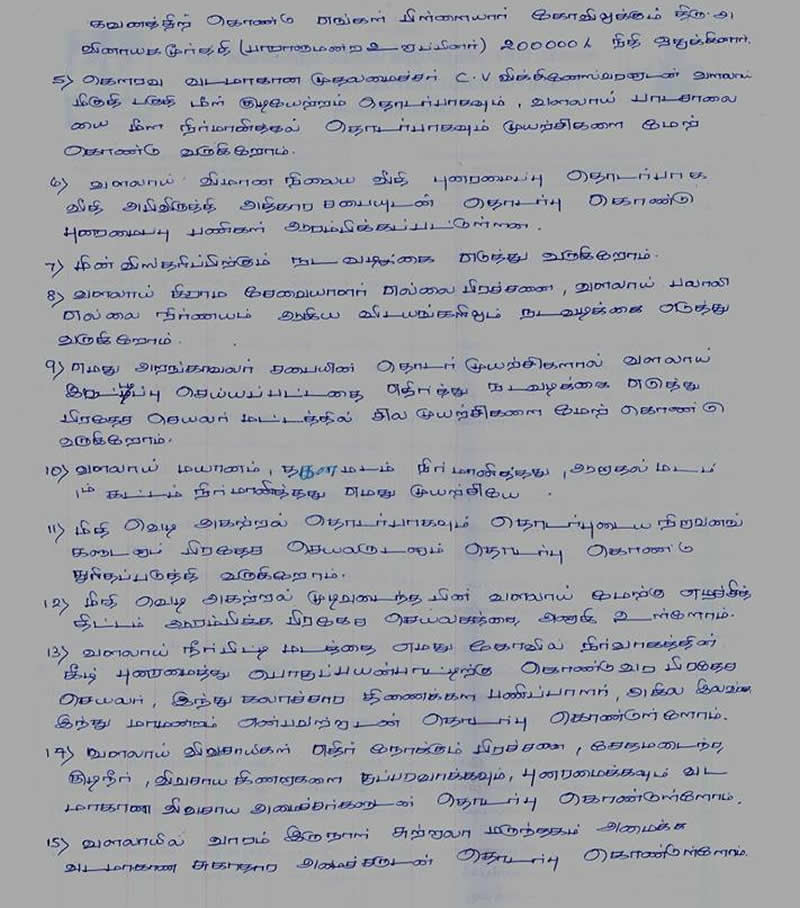 கவனத்திற் கொண்டு எங்கள் பிள்ளையார் கோவிலுக்கும் திரு. அ
விநாயகமூர்த்தி (பாராளுமன்ற உறுப்பினர்) 200000/- நிதி ஒதுக்கினார்.
5) கௌரவ வடமாகாண முதலமைச்சர் C.V விக்கினேஸ்வரனுடன் வளலாய்
மிகுதி பகுதி மீள் குடியேற்றம் தொடர்பாகவும், வளலாய் பாடசாலை
யை மீள நிர்மானித்தல் தொடர்பாகவும் முயற்சிகளை மேற்
கொண்டு வருகிறோம்.
6) வளலாய் விமான நிலைய வீதி புனரமைப்பு தொடர்பாக
வீதி அபிவிருத்தி அதிகார சபையுடன் தொடர்பு கொண்டு
புனரமைப்பு பணிகள் ஆரம்பிக்கப்பட்டுள்ளன.
7) மின் விஸ்தரிப்பிற்கும் நடவடிக்கை எடுத்து வருகிறோம்.
8) வளலாய் கிராம சேவையாளர் எல்லை பிரச்சனை, வளலாய் பலாலி
எல்லை நிர்ணயம் ஆகிய விடயங்களிலும் நடவடிக்கை எடுத்து
வருகிறோம்.
9) எமது அறங்காவலர் சபையின் தொடர் முயற்சிகளால் வளலாய்
செய்யப்பட்டதை எதிர்த்து நடவடிக்கை எடுத்து
பிரதேச செயலர் மட்டத்தில் சில முயற்சிகளை மேற் கொண்டு
வருகிறோம்.
10) வளலாய் மயானம், தகன மடம் நிர்மானித்தது, ஆறுதல் மடம்
கட்டம் நிர்மானித்தது எமது முயற்சியே.
11) மிதி வெடி அகற்றல் தொடர்பாகவும் தொடர்புடைய நிறுவனங்
களுடனும் பிரதேச செயலருடனும் தொடர்பு கொண்டு
துரிதப்படுத்தி வருகிறோம்.
12) மிதி வெடி அகற்றல் முடிவடைந்த பின் வளலாய் மேற்கு எழுச்சித்
திட்டம் ஆரம்பிக்க பிரதேச செயலகத்தை அணுகி உள்ளோம்.
13) வளலாய் மடத்தை எமது கோவில் நிர்வாகத்தின்
கீழ் புனரமைத்து பொதுப்பயன்பாட்டிற்கு கொண்டுவர பிரதேச
செயலர், இந்து கலாச்சார திணைக்கள பணிப்பாளர், அகில இலங்கை
இந்து மாமன்றம் என்பவற்றுடன் தொடர்பு கொண்டுள்ளோம்.
14) வளலாய் விவசாயிகள் எதிர் நோக்கும் பிரச்சனை, சேதமடைந்த
குடிநீர், விவசாய கிணறுகளை துப்பரவாக்கவும், புனரமைக்கவும் வட
மாகாண விவசாய அமைச்சர்களுடன் தொடர்பு கொண்டுள்ளோம்.
15) வளலாயில் வாரம் இருநாள் சுற்றுலா மருந்தகம் அமைக்க
வடமாகாண சுகாதார அமைச்சருடன் தொடர்பு கொண்டுள்ளோம்.